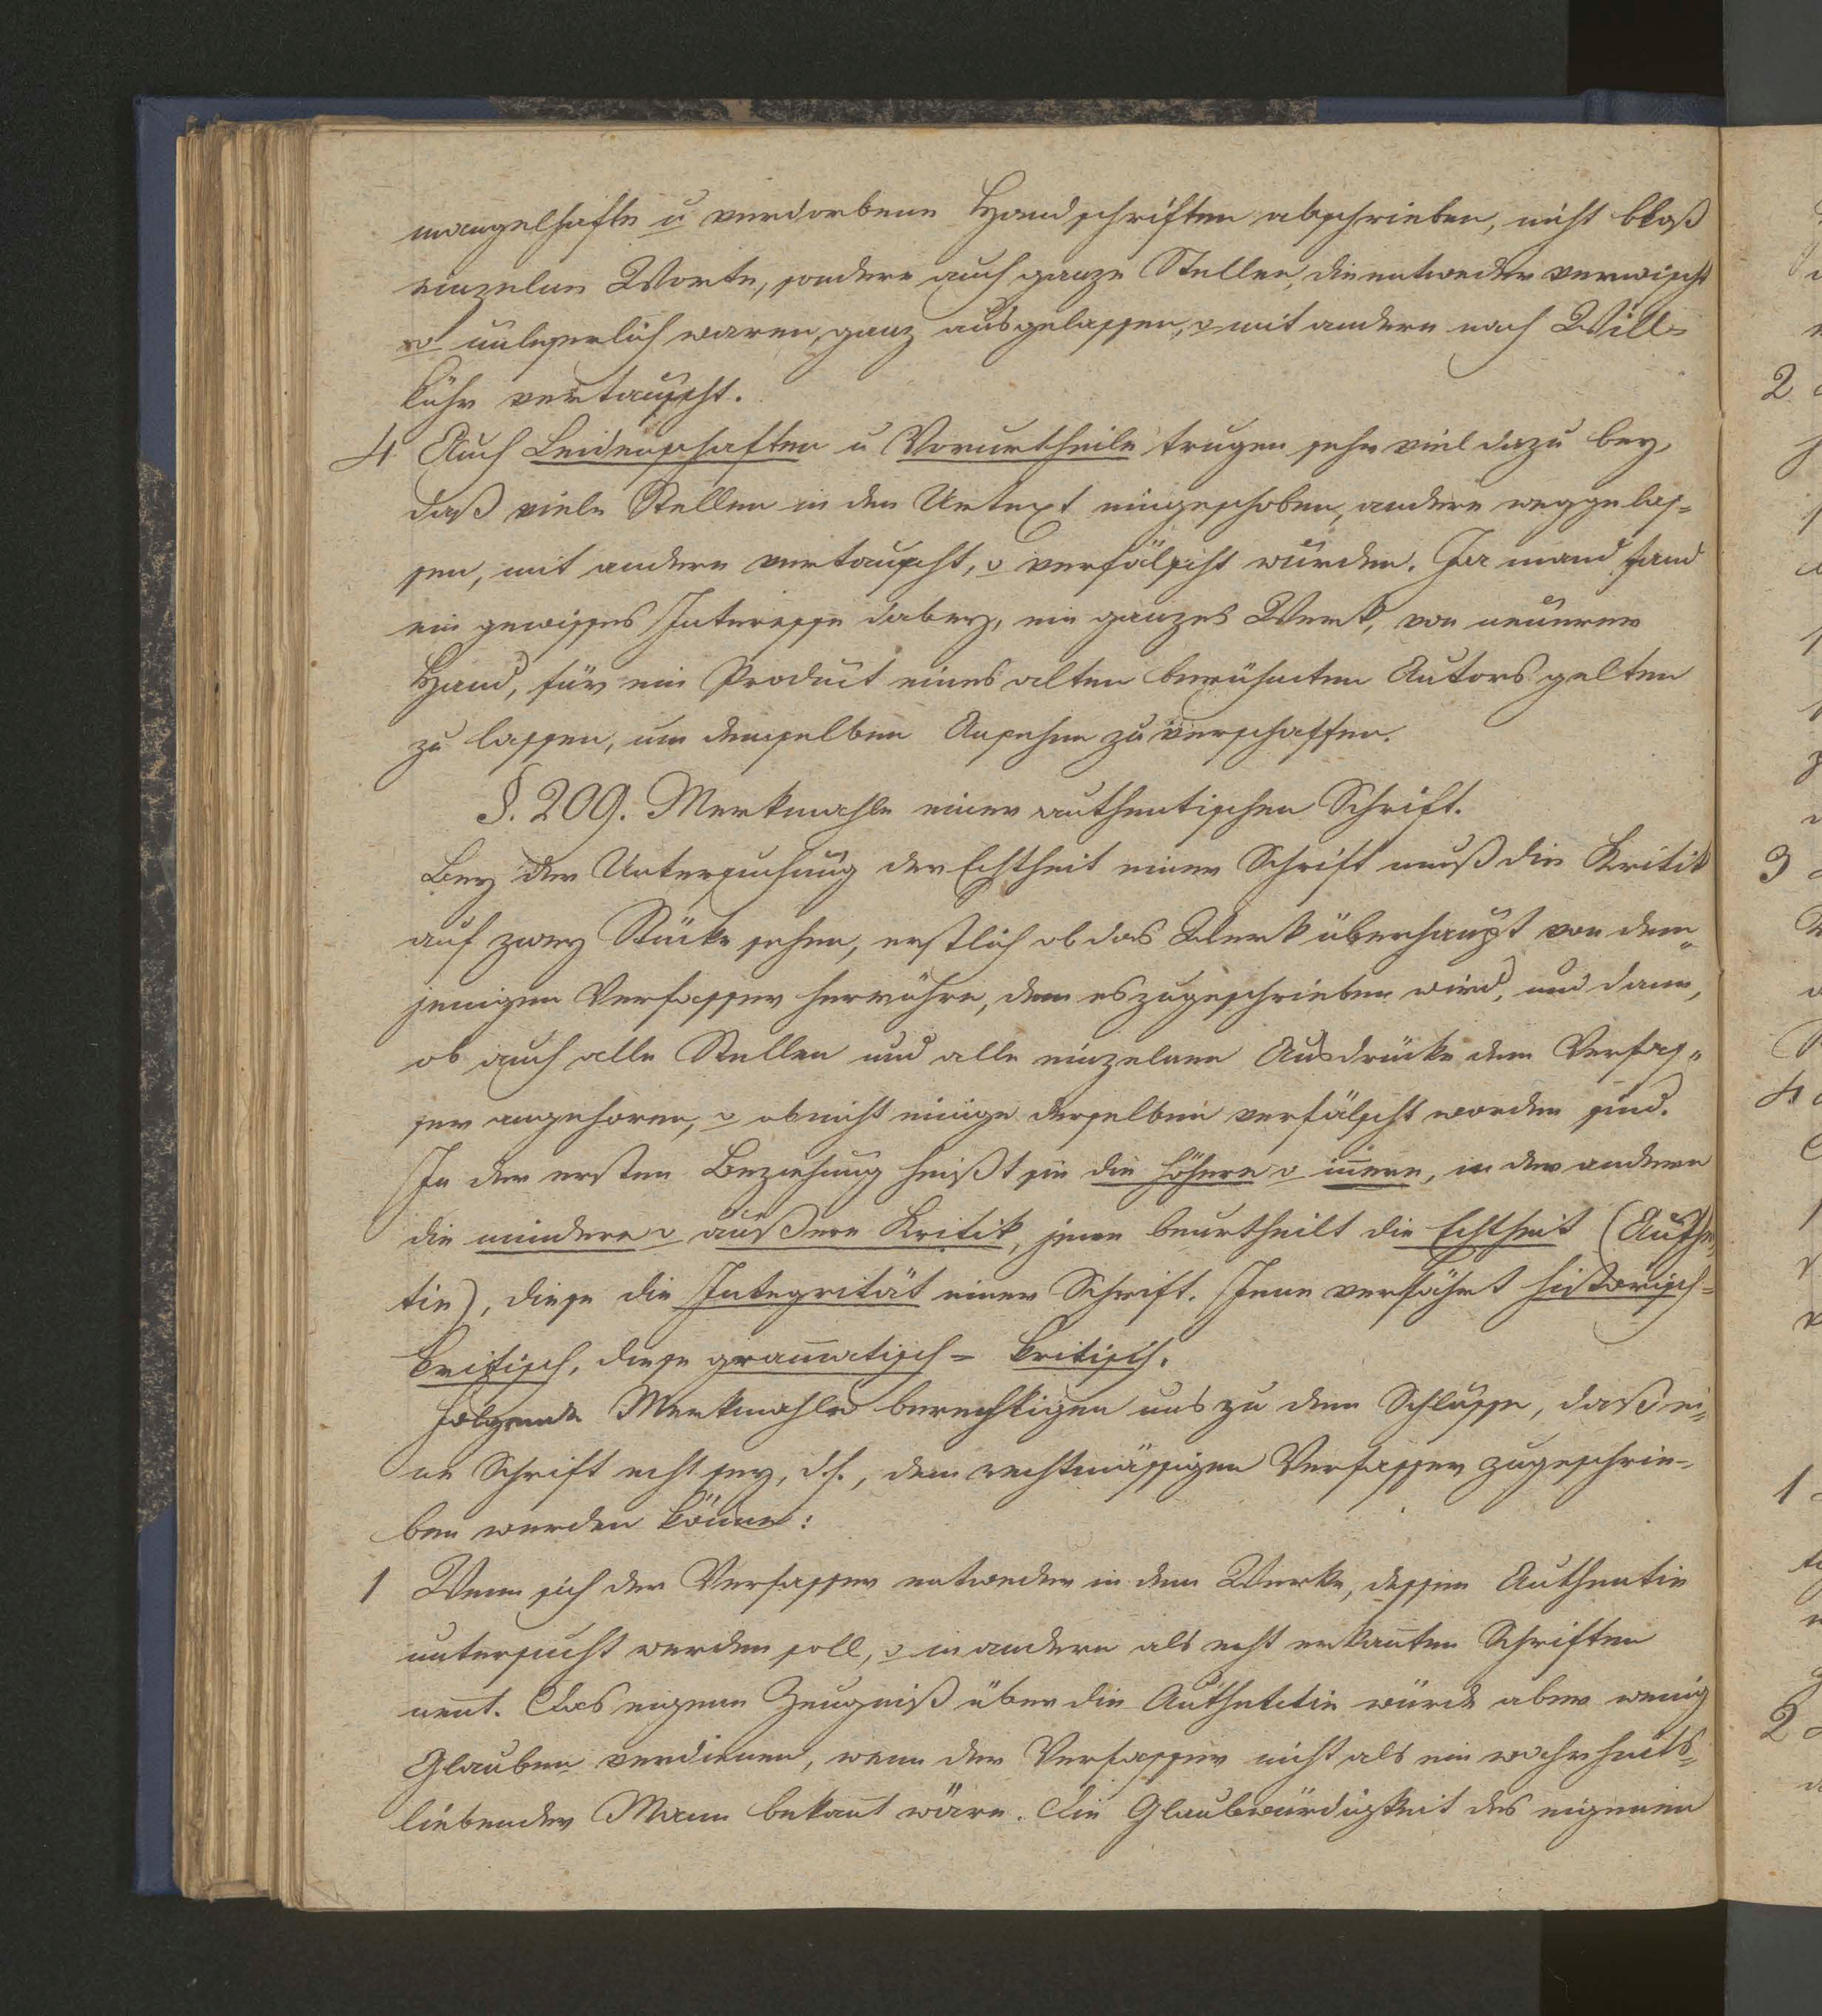 mangelhafte u verdorbene Handschriften abschrieben, nicht bloß
einzelne Worte, sondern auch ganze Stellen, die entweder verwischt
o unleserlich waren, ganz ausgelassen, o mit andern nach Will=
kühr vertauscht.
4 Auch Leidenschaften u Vorurtheile trugen sehr viel dazu bey,
daß viele Stellen in den Urtext eingeschoben, andere weggelas=
sen, mit andern vertauscht, o verfälscht wurden. Ja mand fand
ein gewisses Interesse dabey, ein ganzes Werk, von neuerer
Hand, für ein Product eines alten berühmten Autors gelten
zu lassen, um demselben Ansehen zu verschaffen.
§. 209. Merkmahle einer authentischen Schrift.
Bey der Untersuchung der Echtheit einer Schrift muß die Kritik
auf zwey Stücke sehen, erstlich ob das Werk überhaupt von dem=
jenigen Verfasser herrühre, dem es zugeschrieben wird, und dann,
ob auch alle Stellen und alle einzelnen Ausdrücke dem Verfas=
ser angehoren, o ob nicht einige derselben verfälscht worden sind.
In der ersten Beziehung heißt sie die höhere o innere, in der andern
die mindere o äußere Kritik, jene beurtheilt die Echtheit (Authen
tie), diese die Integrität einer Schrift. Jene verfährt historisch=
kritisch, diese gram̅atisch= kritisch.
Folgende Merkmahle berechtigen uns zu dem Schlusse, daß ei=
ne Schrift echt sey, d.h., dem rechtmässigen Verfasser zugeschrie=
ben werden kön̅e:
1 Wenn sich der Verfasser entweder in dem Werke, dessen Authentie
untersucht werden soll, o in andern als echt erkan̅ten Schriften
nen̅t. Das eigene Zeugniß über die Authetetie würde aber wenig
Glauben verdienen, wenn der Verfasser nicht als ein wahrheits=
liebender Mann bekan̅t wäre. Die Glaubwürdigkeit des eigenen
2
3
4
1
2